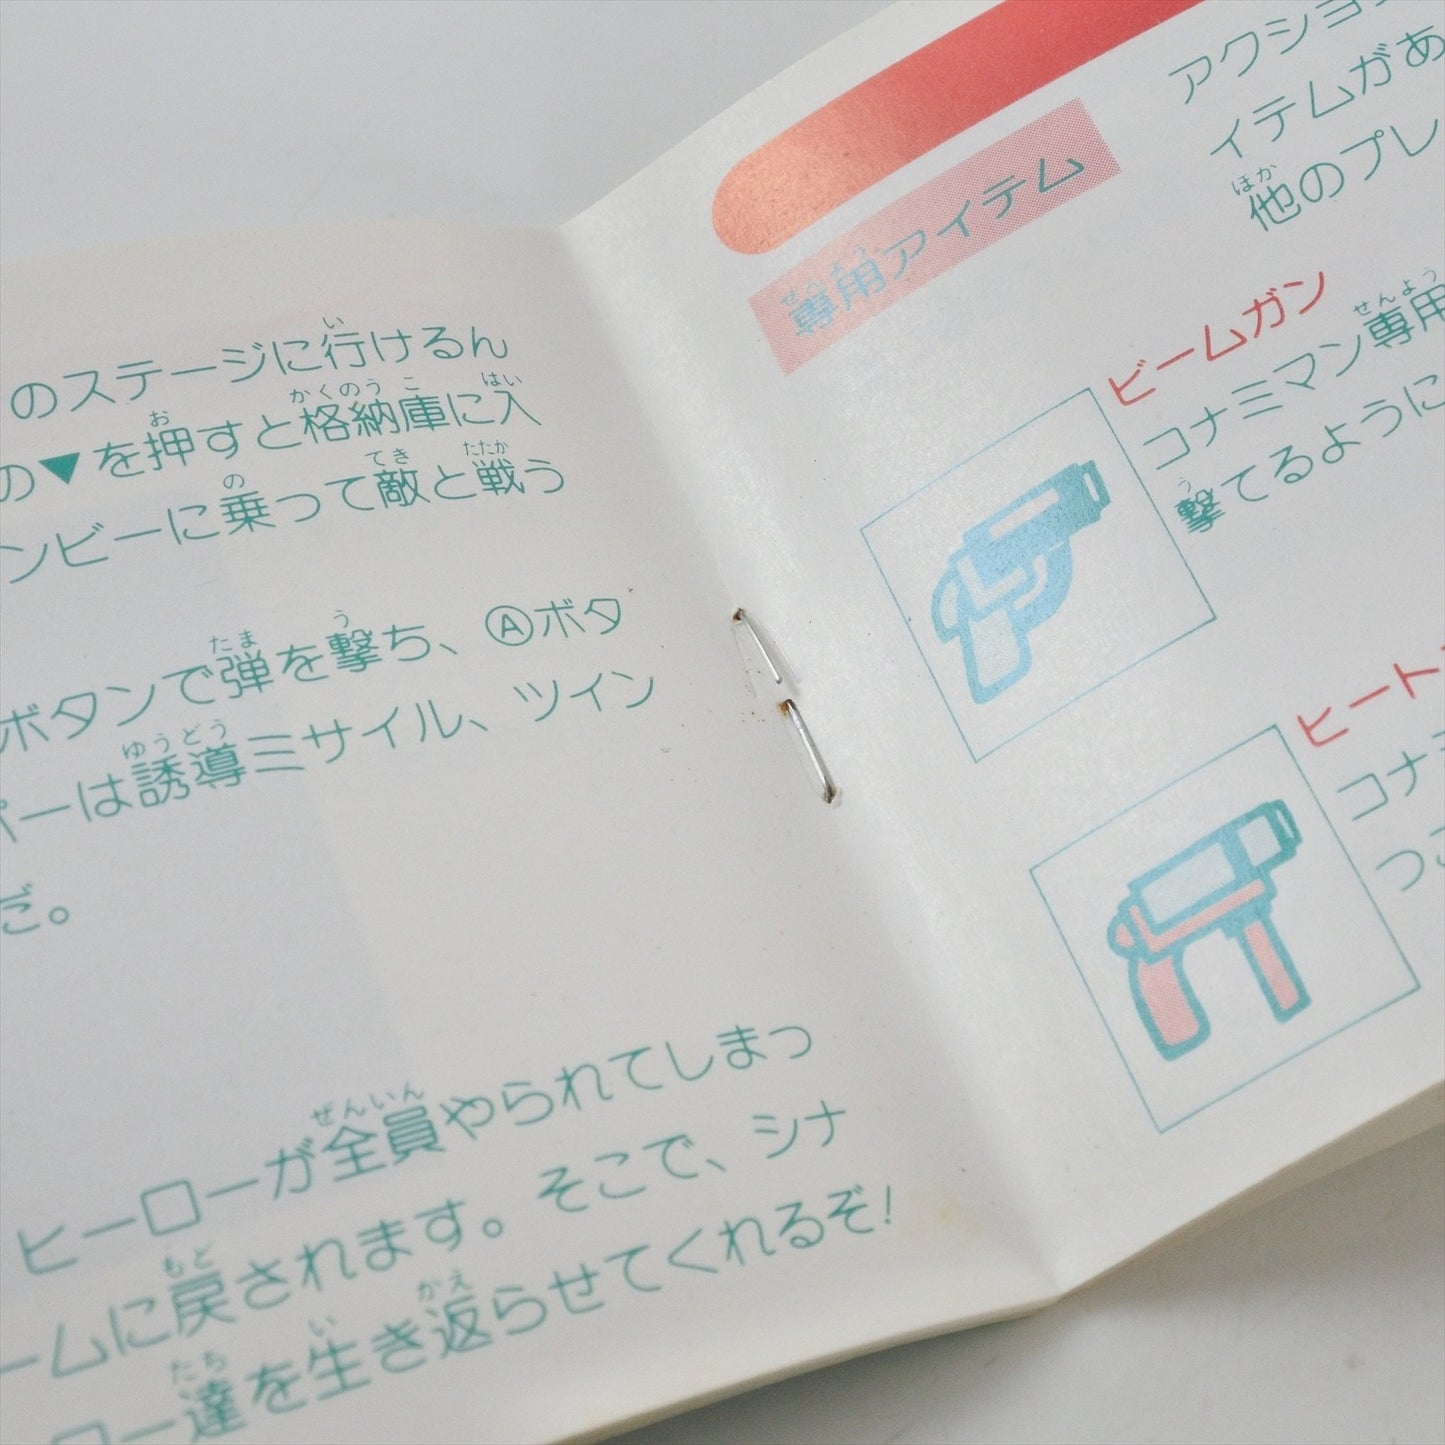 のステージに行けるん
の▼を押すと格納庫に入
ンビーに乗って敵と戦う
ボタンで弾を撃ち、Ⓐボタ
パーは誘導ミサイル、ツイン
だ。
ヒーローが全員やられてしまっ
ームに戻されます。そこで、シナ
ロー達を生き返らせてくれるぞ!
専用アイテム
アクション
イテムがあ
他のプレ
ビームガン
コナミマン専用
撃てるように
ヒート
コナミ
つ